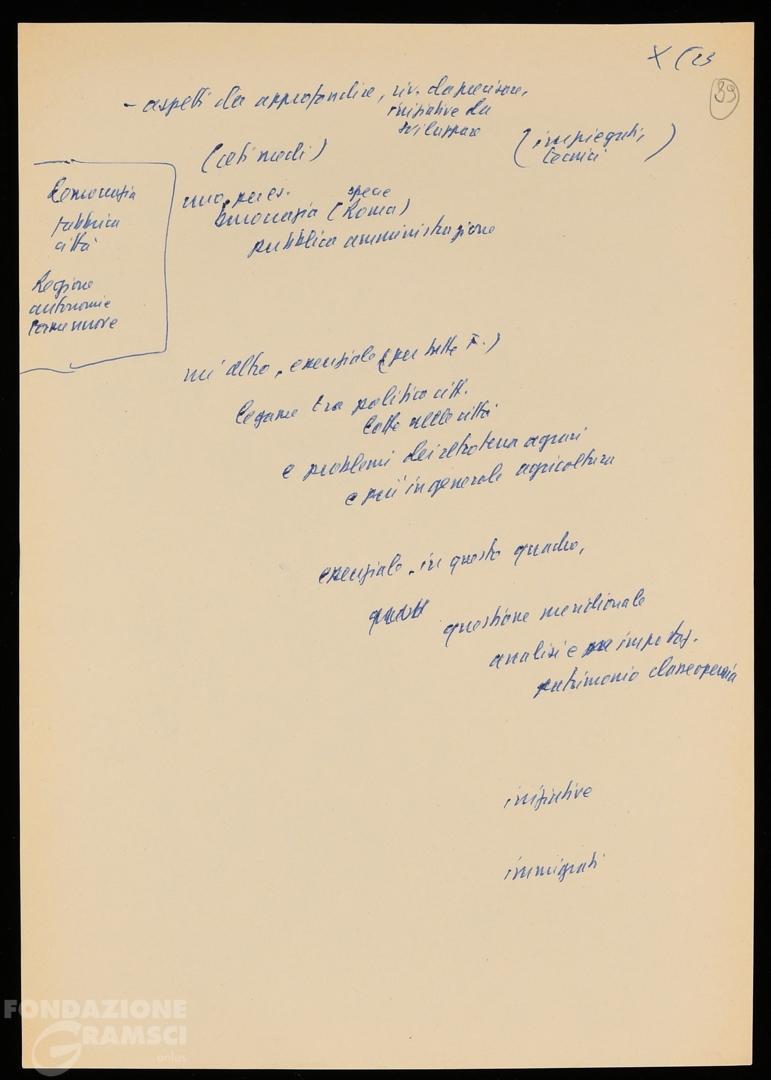 X (23
39
- aspetti da approfondire, riv. da precisare,
iniziative da
sviluppare
(ceti medi)
(impiegati,
tecnici)
Democrazia
fabbrica
città
Regione
autonomie
forme nuove
uno, per es.
specie
burocrazia (Roma)
pubblica amministrazione
un altro, essenziale (per tutte F.)
legame tra politica citt.
lotte nelle città
e problemi dei retroterra agrari
e più in generale agricoltura
essenziale, in questo quadro,
questione meridionale
analisi e impostaz.
patrimonio classe operaia
iniziative
immigrati
FONDAZIONE
GRAMSCI
onlus